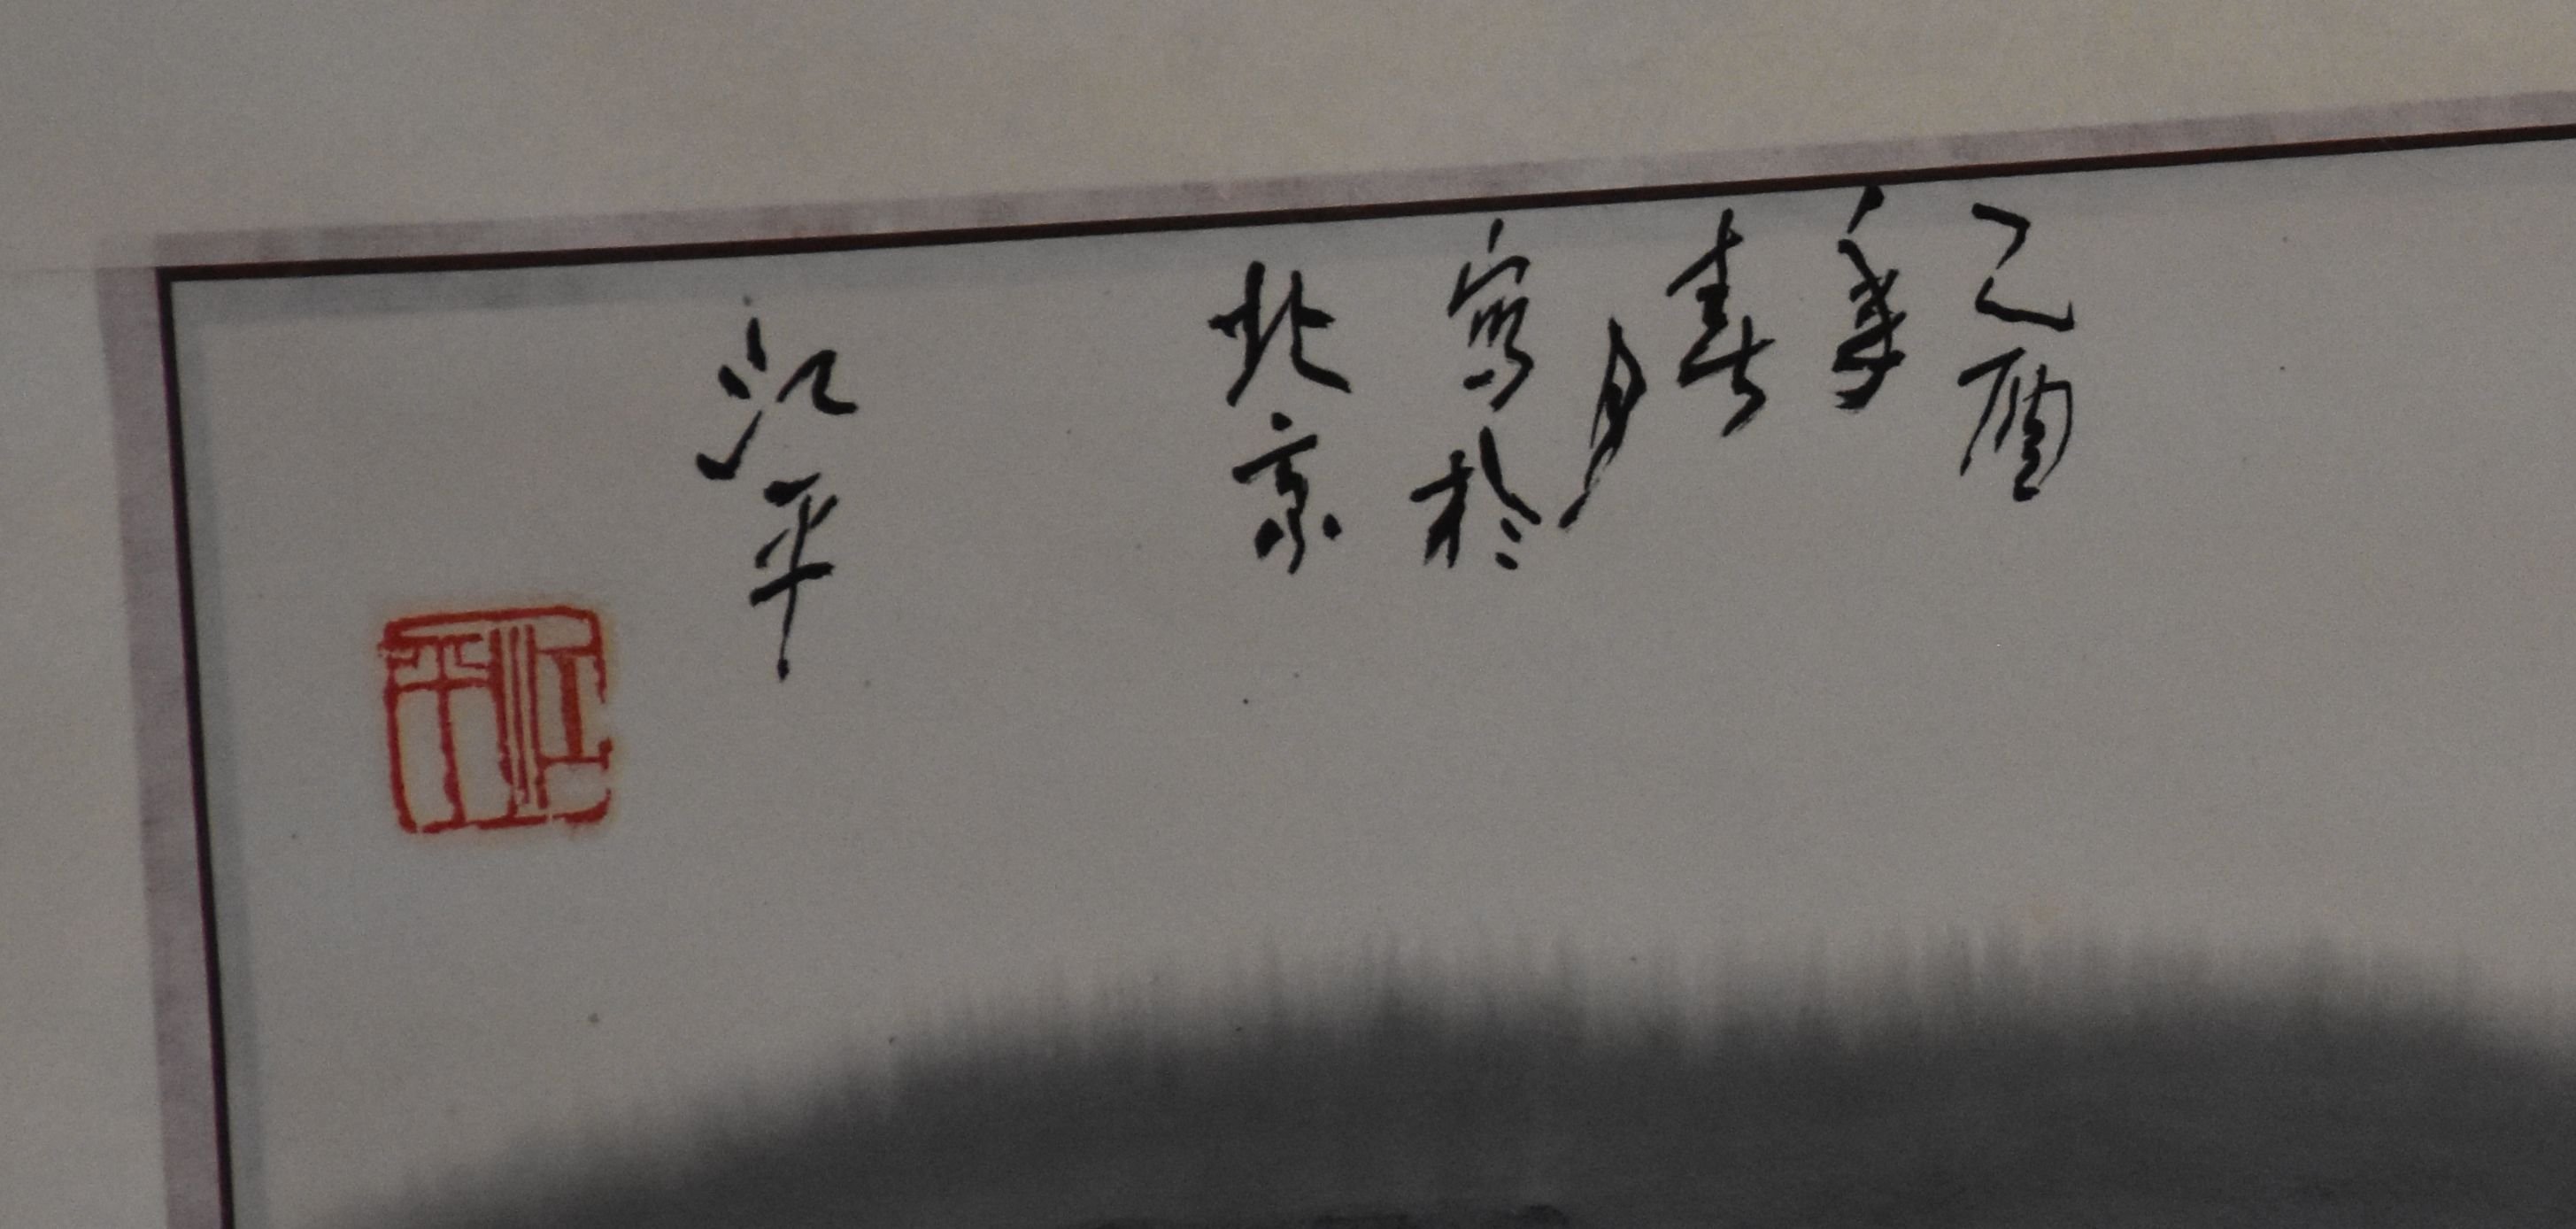 乙酉
年
春
月
寫於
北京
江平
江平